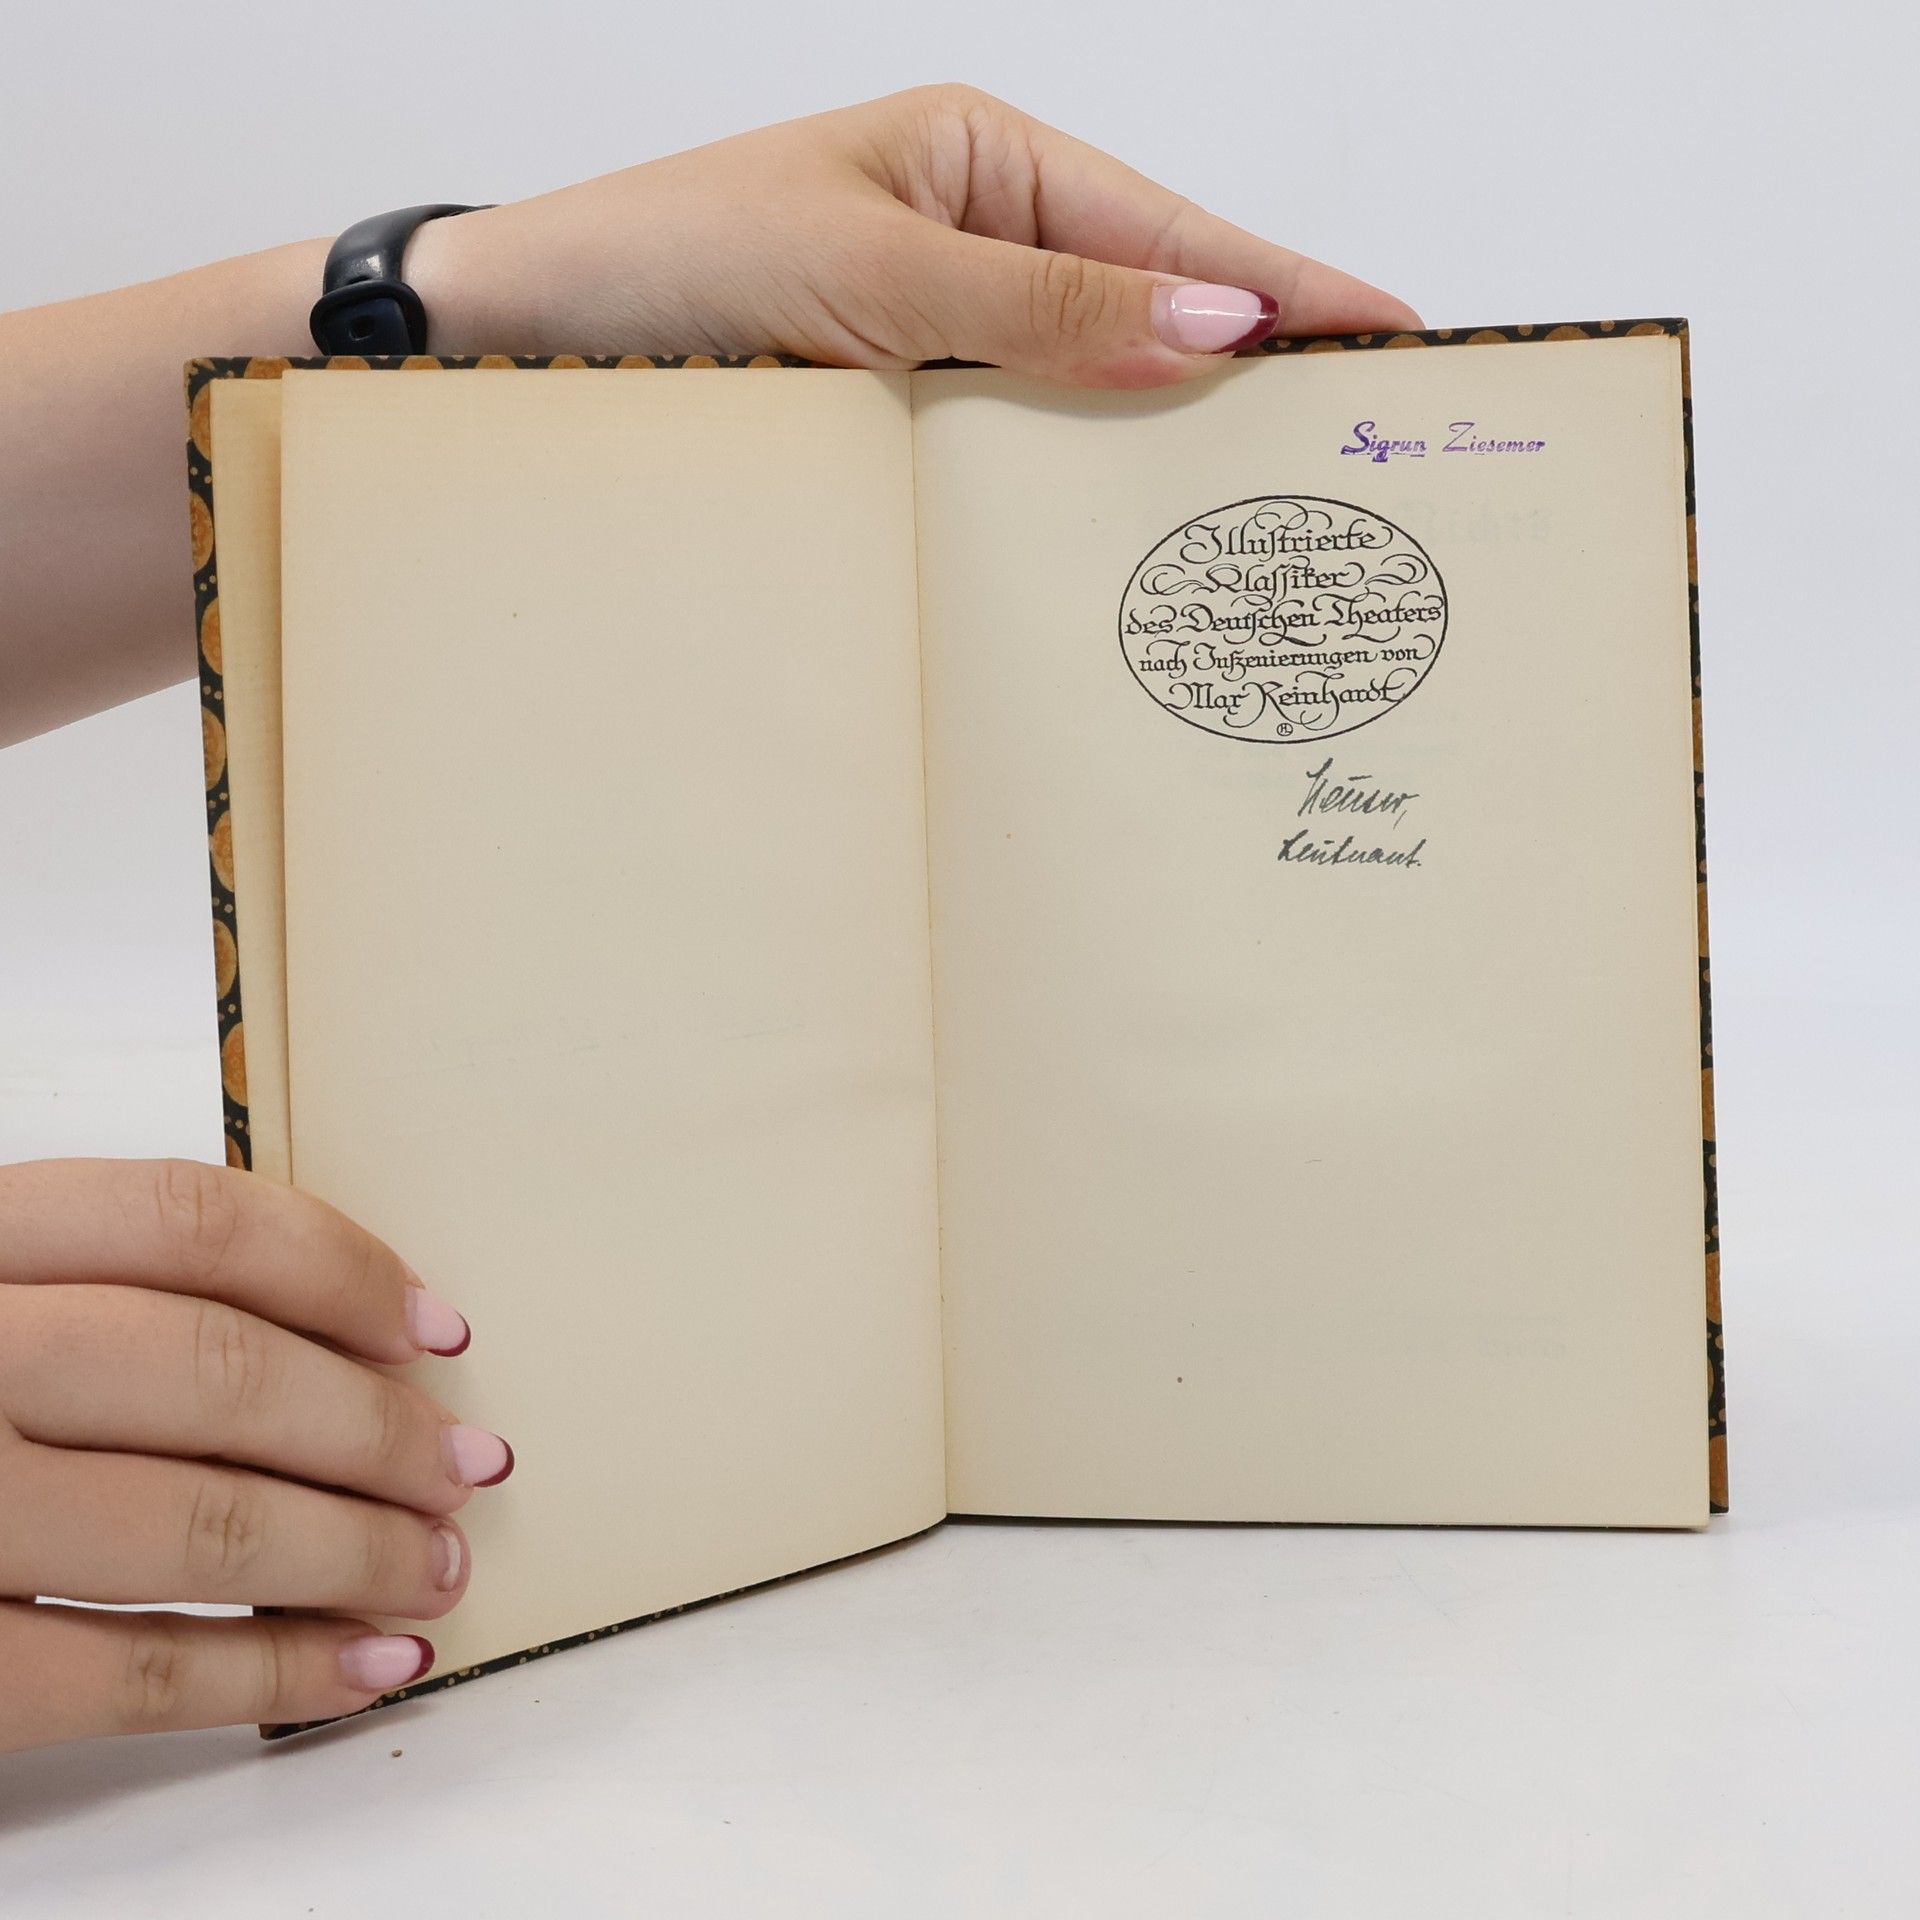 Sigrun Ziesemer
Illustrierte
Klassiker
des Deutschen Theaters
nach Inszenierungen von
Max Reinhardt
Leutnant.